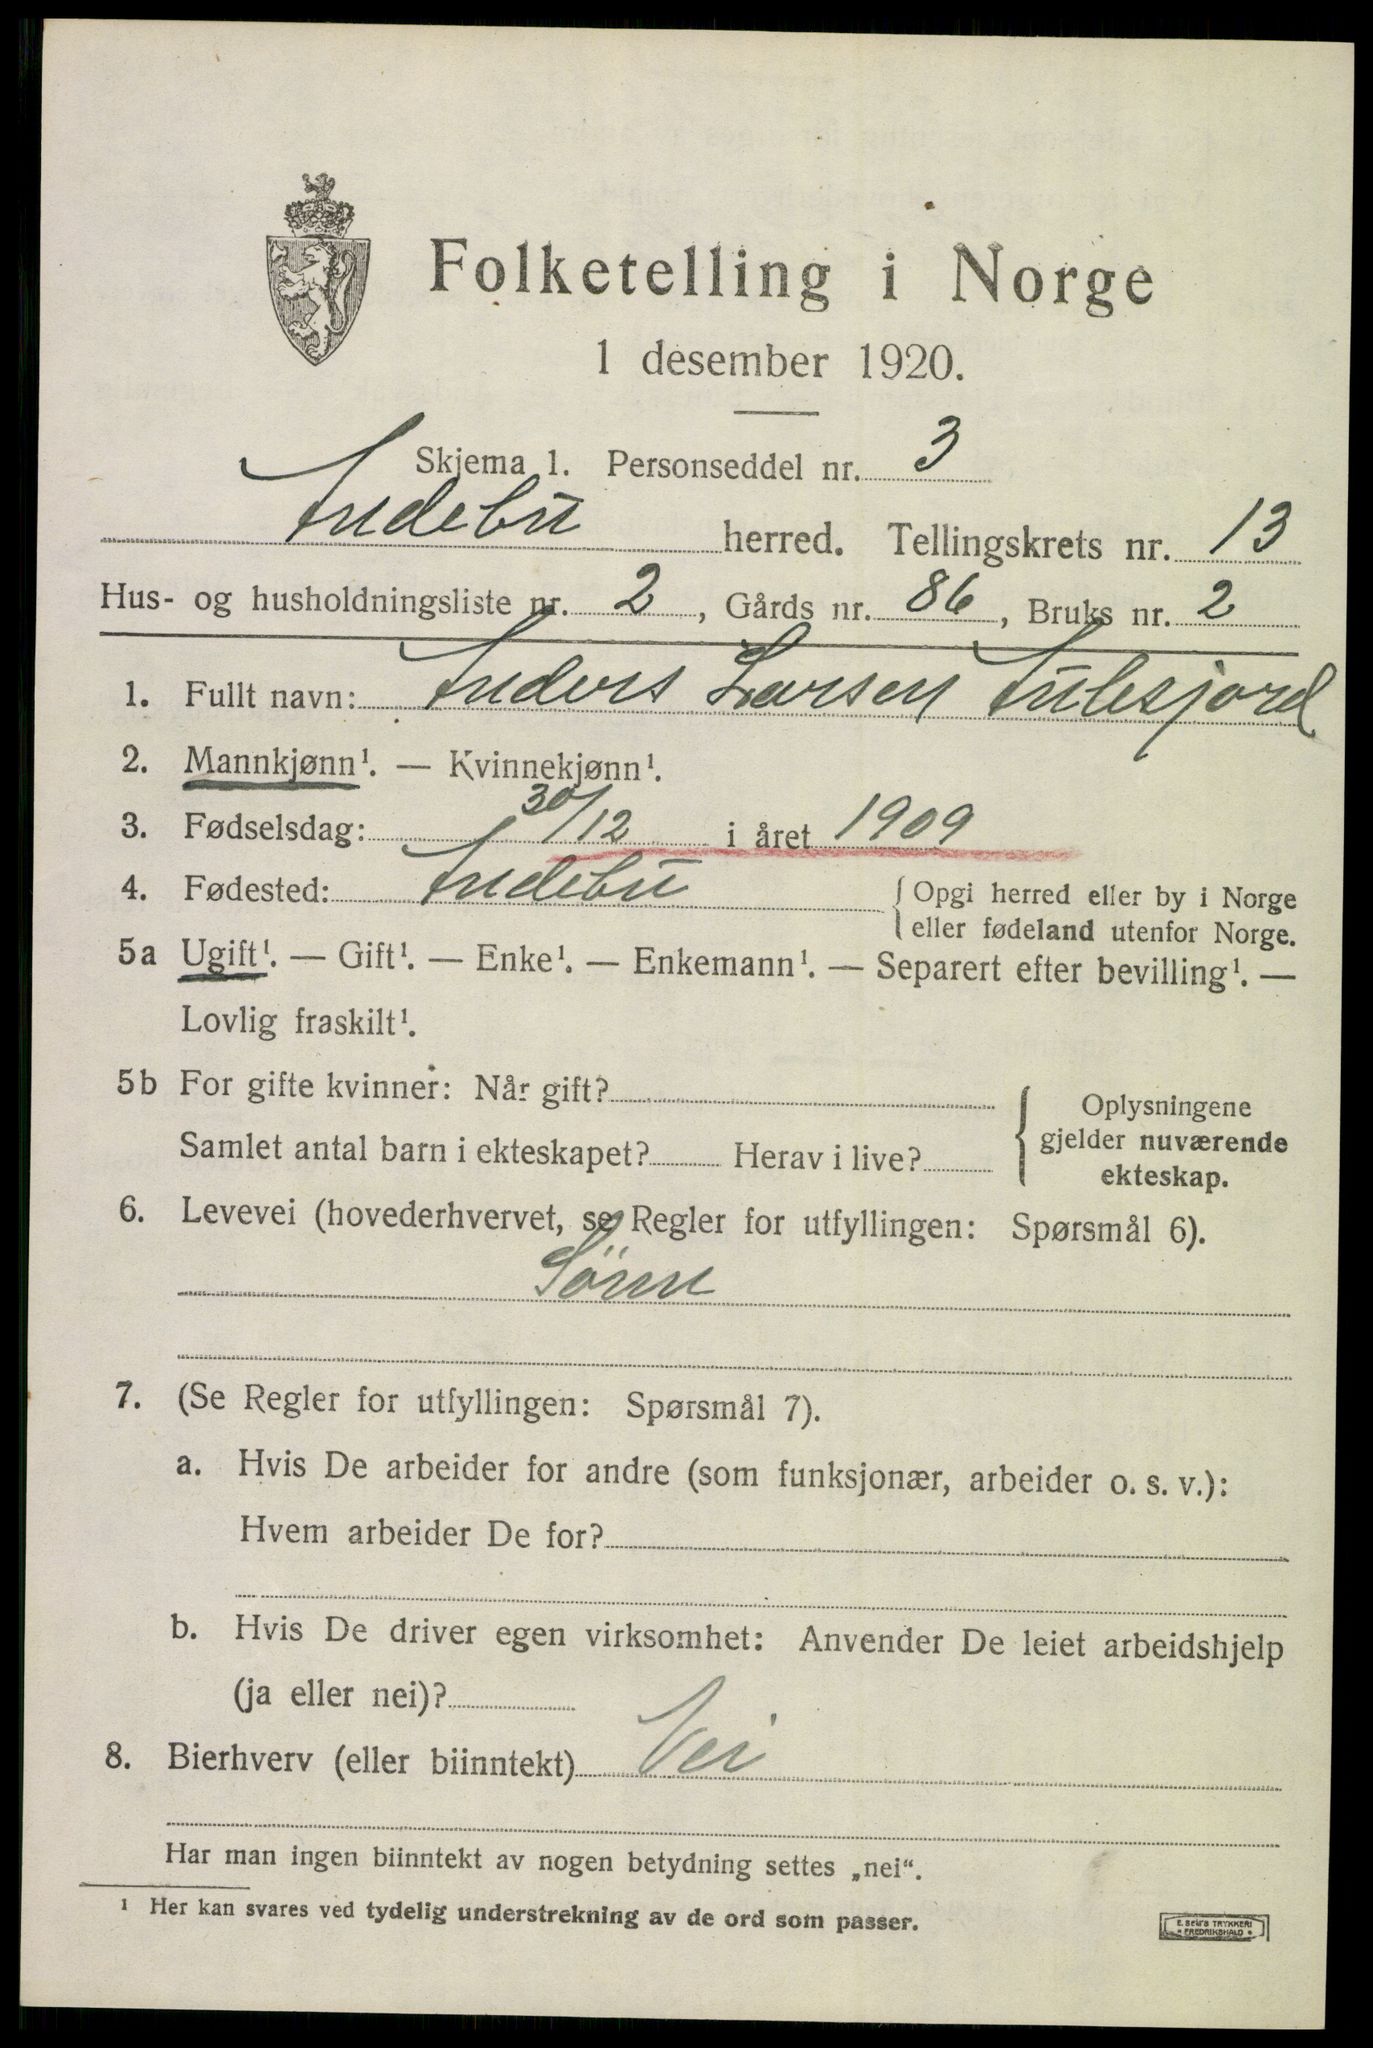 Folketelling i Norge
1 desember 1920.
Skjema 1. Personseddel nr. 3
Andebu herred. Tellingskrets nr. 13
Hus- og husholdningsliste nr. 2, Gårds nr. 86, Bruks nr. 2
1. Fullt navn: Anders Larsen Aulesjord
2. Mannkjønn¹. — Kvinnekjønn¹.
3. Fødselsdag: 30/12 i året 1909
4. Fødested: Andebu { Opgi herred eller by i Norge
eller fødeland utenfor Norge.
5a Ugift¹. — Gift¹. — Enke¹. — Enkemann¹. — Separert efter bevilling¹. —
Lovlig fraskilt¹.
5b For gifte kvinner: Når gift?
Samlet antal barn i ekteskapet? Herav i live?
Oplysningene
gjelder nuværende
ekteskap.
6. Levevei (hovederhvervet, se Regler for utfyllingen: Spørsmål 6).
Sönn
7. (Se Regler for utfyllingen: Spørsmål 7).
a. Hvis De arbeider for andre (som funksjonær, arbeider o. s. v.):
Hvem arbeider De for?
b. Hvis De driver egen virksomhet: Anvender De leiet arbeidshjelp
(ja eller nei)?
8. Bierhverv (eller biinntekt) Nei
Har man ingen biinntekt av nogen betydning settes „nei“.
¹ Her kan svares ved tydelig understrekning av de ord som passer.
E. SEM'S TRYKKERI
* FREDRIKSHALD *